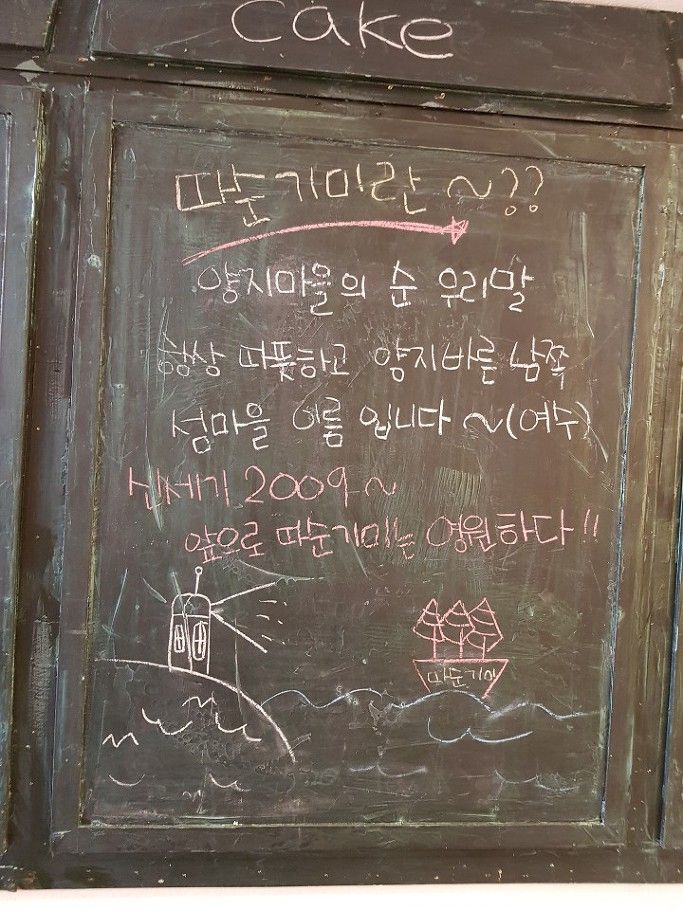 cake
따순기미란 ~??
양지마을의 순 우리말
항상 따뜻하고 양지바른 남쪽
섬마을 이름 입니다 ~(여수)
신세기 2009~
앞으로 따순기미는 영원하다!!
따순기미